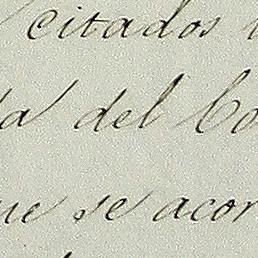 citados
la del Co
ue se acor